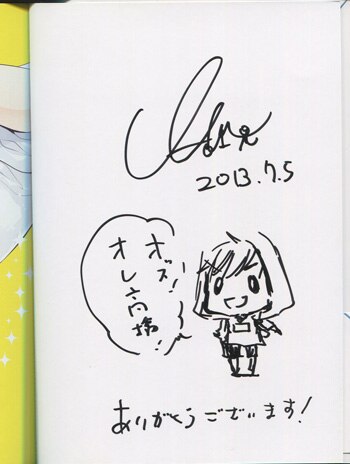 2013.7.5
オッズ!
オレ高橋!
ありがとうございます!